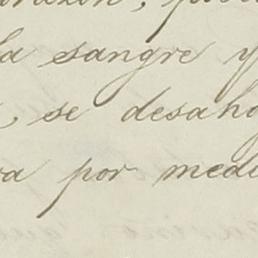 la sangre y
, se desaho
va por medi